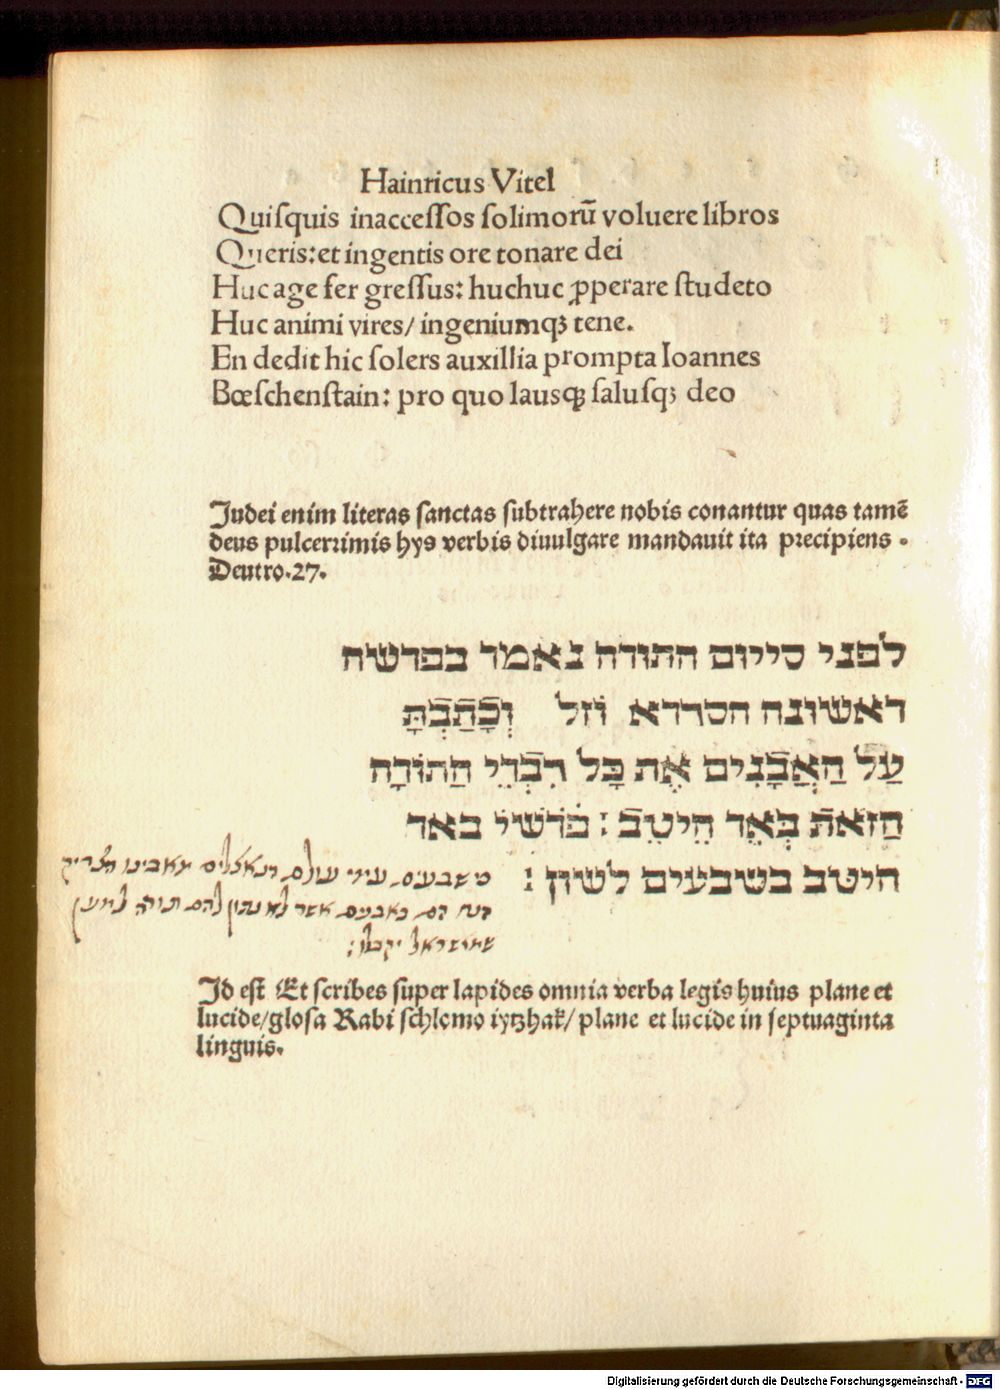 Hainricus Vitel
Quiſquis inacceſſos ſolimorū voluere libros
Queris: et ingentis ore tonare dei
Huc age fer greſſus: huchuc ꝓperare ſtudeto
Huc animi vires/ ingeniumqꝫ tene.
En dedit hic ſolers auxillia prompta Ioannes
Bœſchenſtain: pro quo lausqꝫ ſaluſqꝫ deo
Judei enim literas ſanctas ſubtrahere nobis conantur quas tamē
deus pulcerrimis hys verbis diuulgare mandauit ita precipiens .
Deutro.27.
לפני סייום התורה נאמר בפרשה
ראשונה הסדרא וזל וְכָתַבְתָּ
עַל הַאֲבָנִים אֶת כָּל דִבְרֵי הַתוֹרָה
הַזאֹת בְּאֵר הֵיטֵב : פרשי באר
היטב בשבעים לשון :
אשר לא נתן להם תורה למען
Id eſt Et ſcribes ſuper lapides omnia verba legis huius plane et
lucide/gloſa Rabi ſchlomo iytzhak/ plane et lucide in ſeptuaginta
linguis.
Digitalisierung gefördert durch die Deutsche Forschungsgemeinschaft - DFG